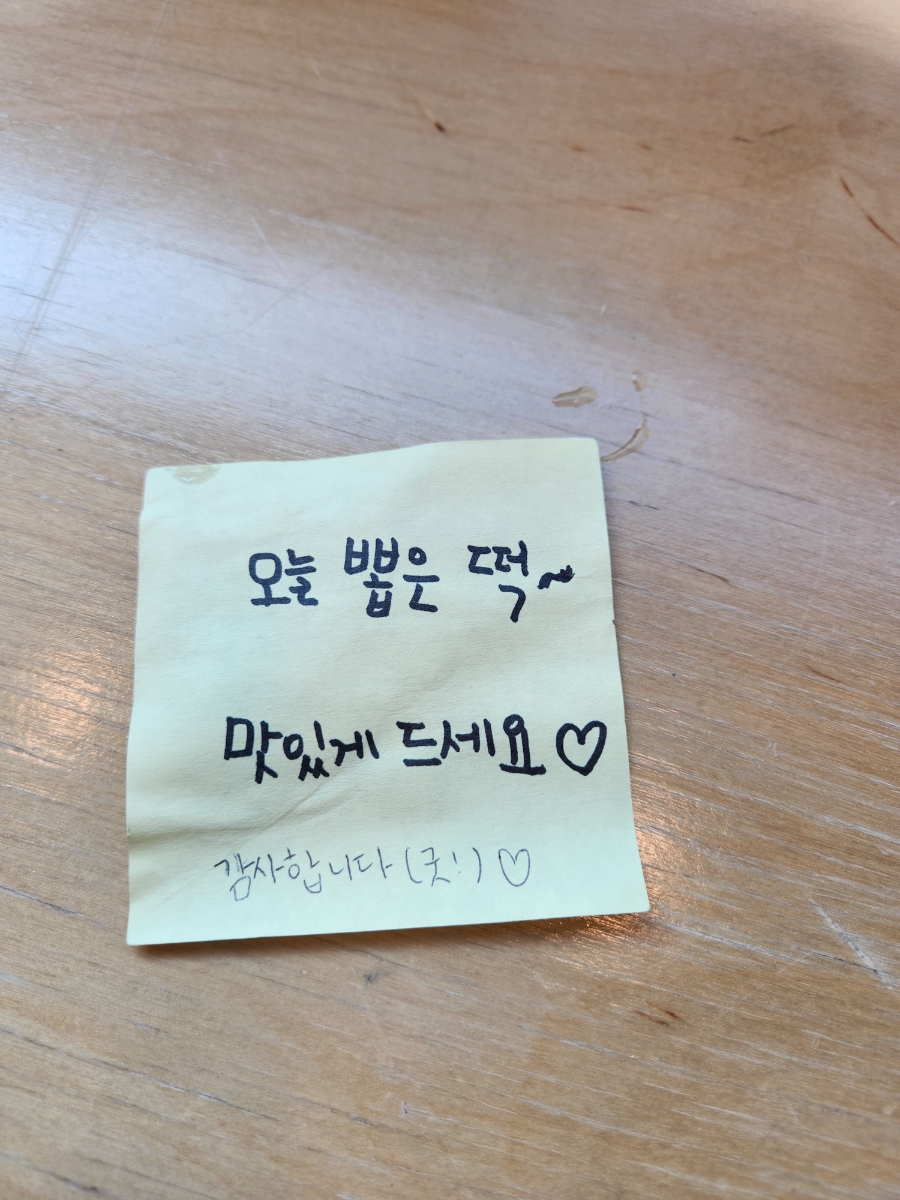 오늘 뽑은 떡~
맛있게 드세요♡
감사합니다 (굿!) ♡